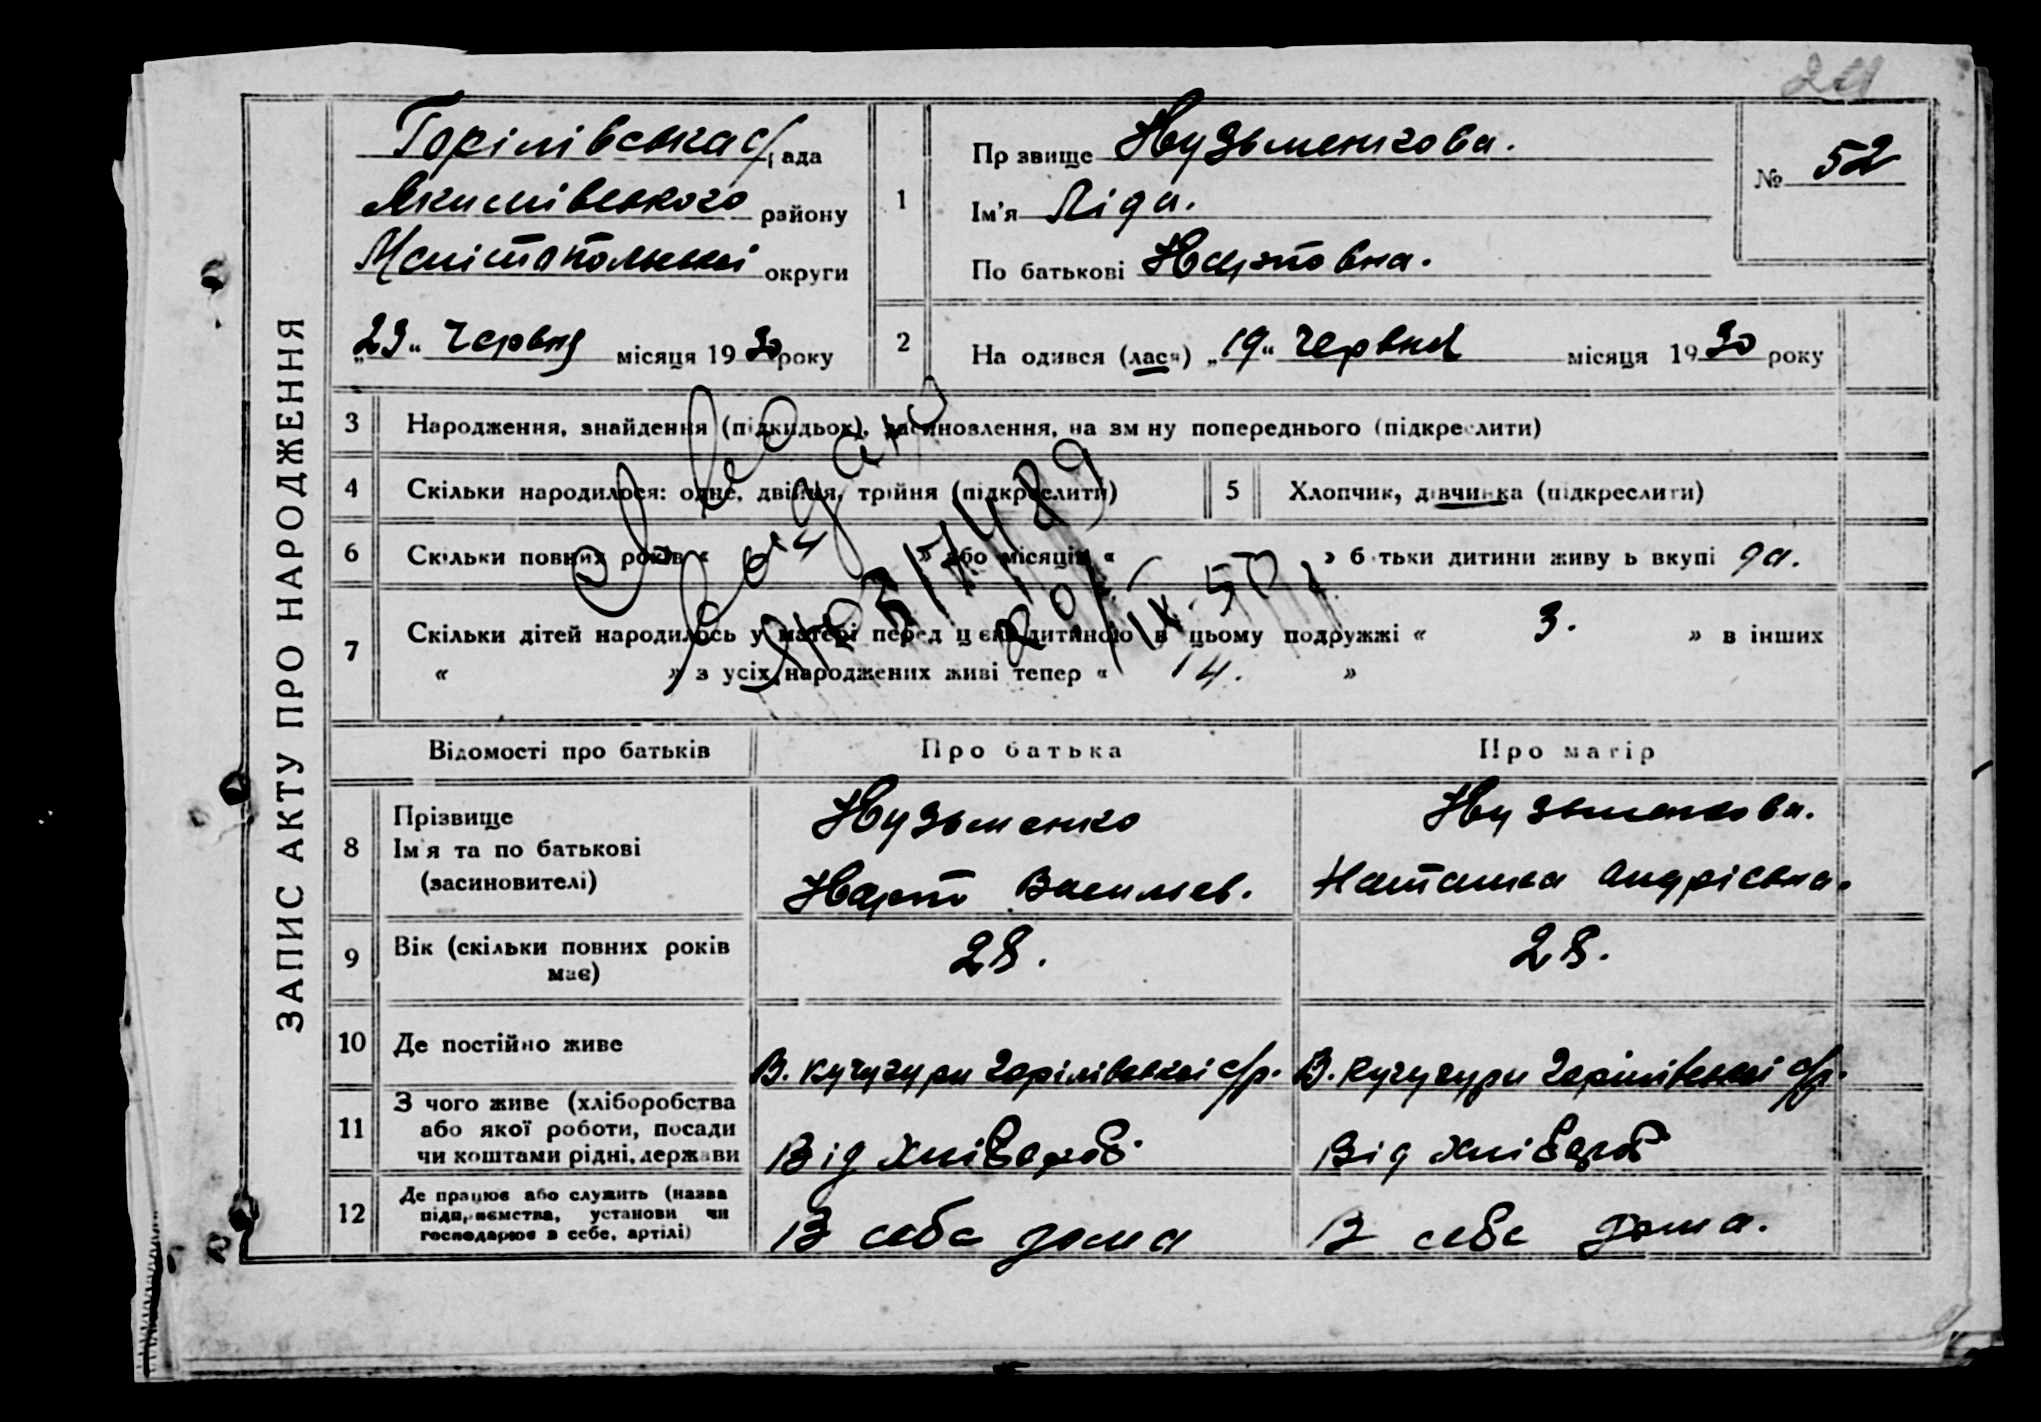 24
ЗАПИС АКТУ ПРО НАРОДЖЕННЯ
Горілівська с/рада
Якимівського району
Меліتопольської округи
„23“ червня місяця 1930 року
1
Прзвище Кузьменкова.
Ім'я Ліда.
По батькові Карповна.
№ 52
2
На одився (лася) „19“ червня місяця 1930 року
3 Народження, знайдення (підкидьок), засиновлення, на зм ну попереднього (підкреслити)
4 Скільки народилося: одне, двійня, трійня (підкреслити)
5 Хлопчик, дівчинка (підкреслити)
6 Скільки повних років « » або місяців « » б тьки дитини живу ь вкупі да.
7 Скільки дітей народилось у матері перед цією дитиною в цьому подружжі « 3. » в інших
« » з усіх народжених живі тепер « 4. »
Відомості про батьків Про батька Про матір
8 Прізвище
Ім'я та по батькові
(засиновителі)
Кузьменко
Карпо Васильев.
Кузьменкова.
Наташка Андрієвна.
9 Вік (скільки повних років
має)
28. 28.
10 Де постійно живе
В. Кучугури Горілівської с/р. В. Кучугури Горілівської с/р.
11 З чого живе (хліборобства
або якої роботи, посади
чи коштами рідні, держави
Від хлібороб. Від хлібороб
12 Де працює або служить (назва
підприємства, установи чи
господарює в себе, артілі)
В себе дома В себе дома.